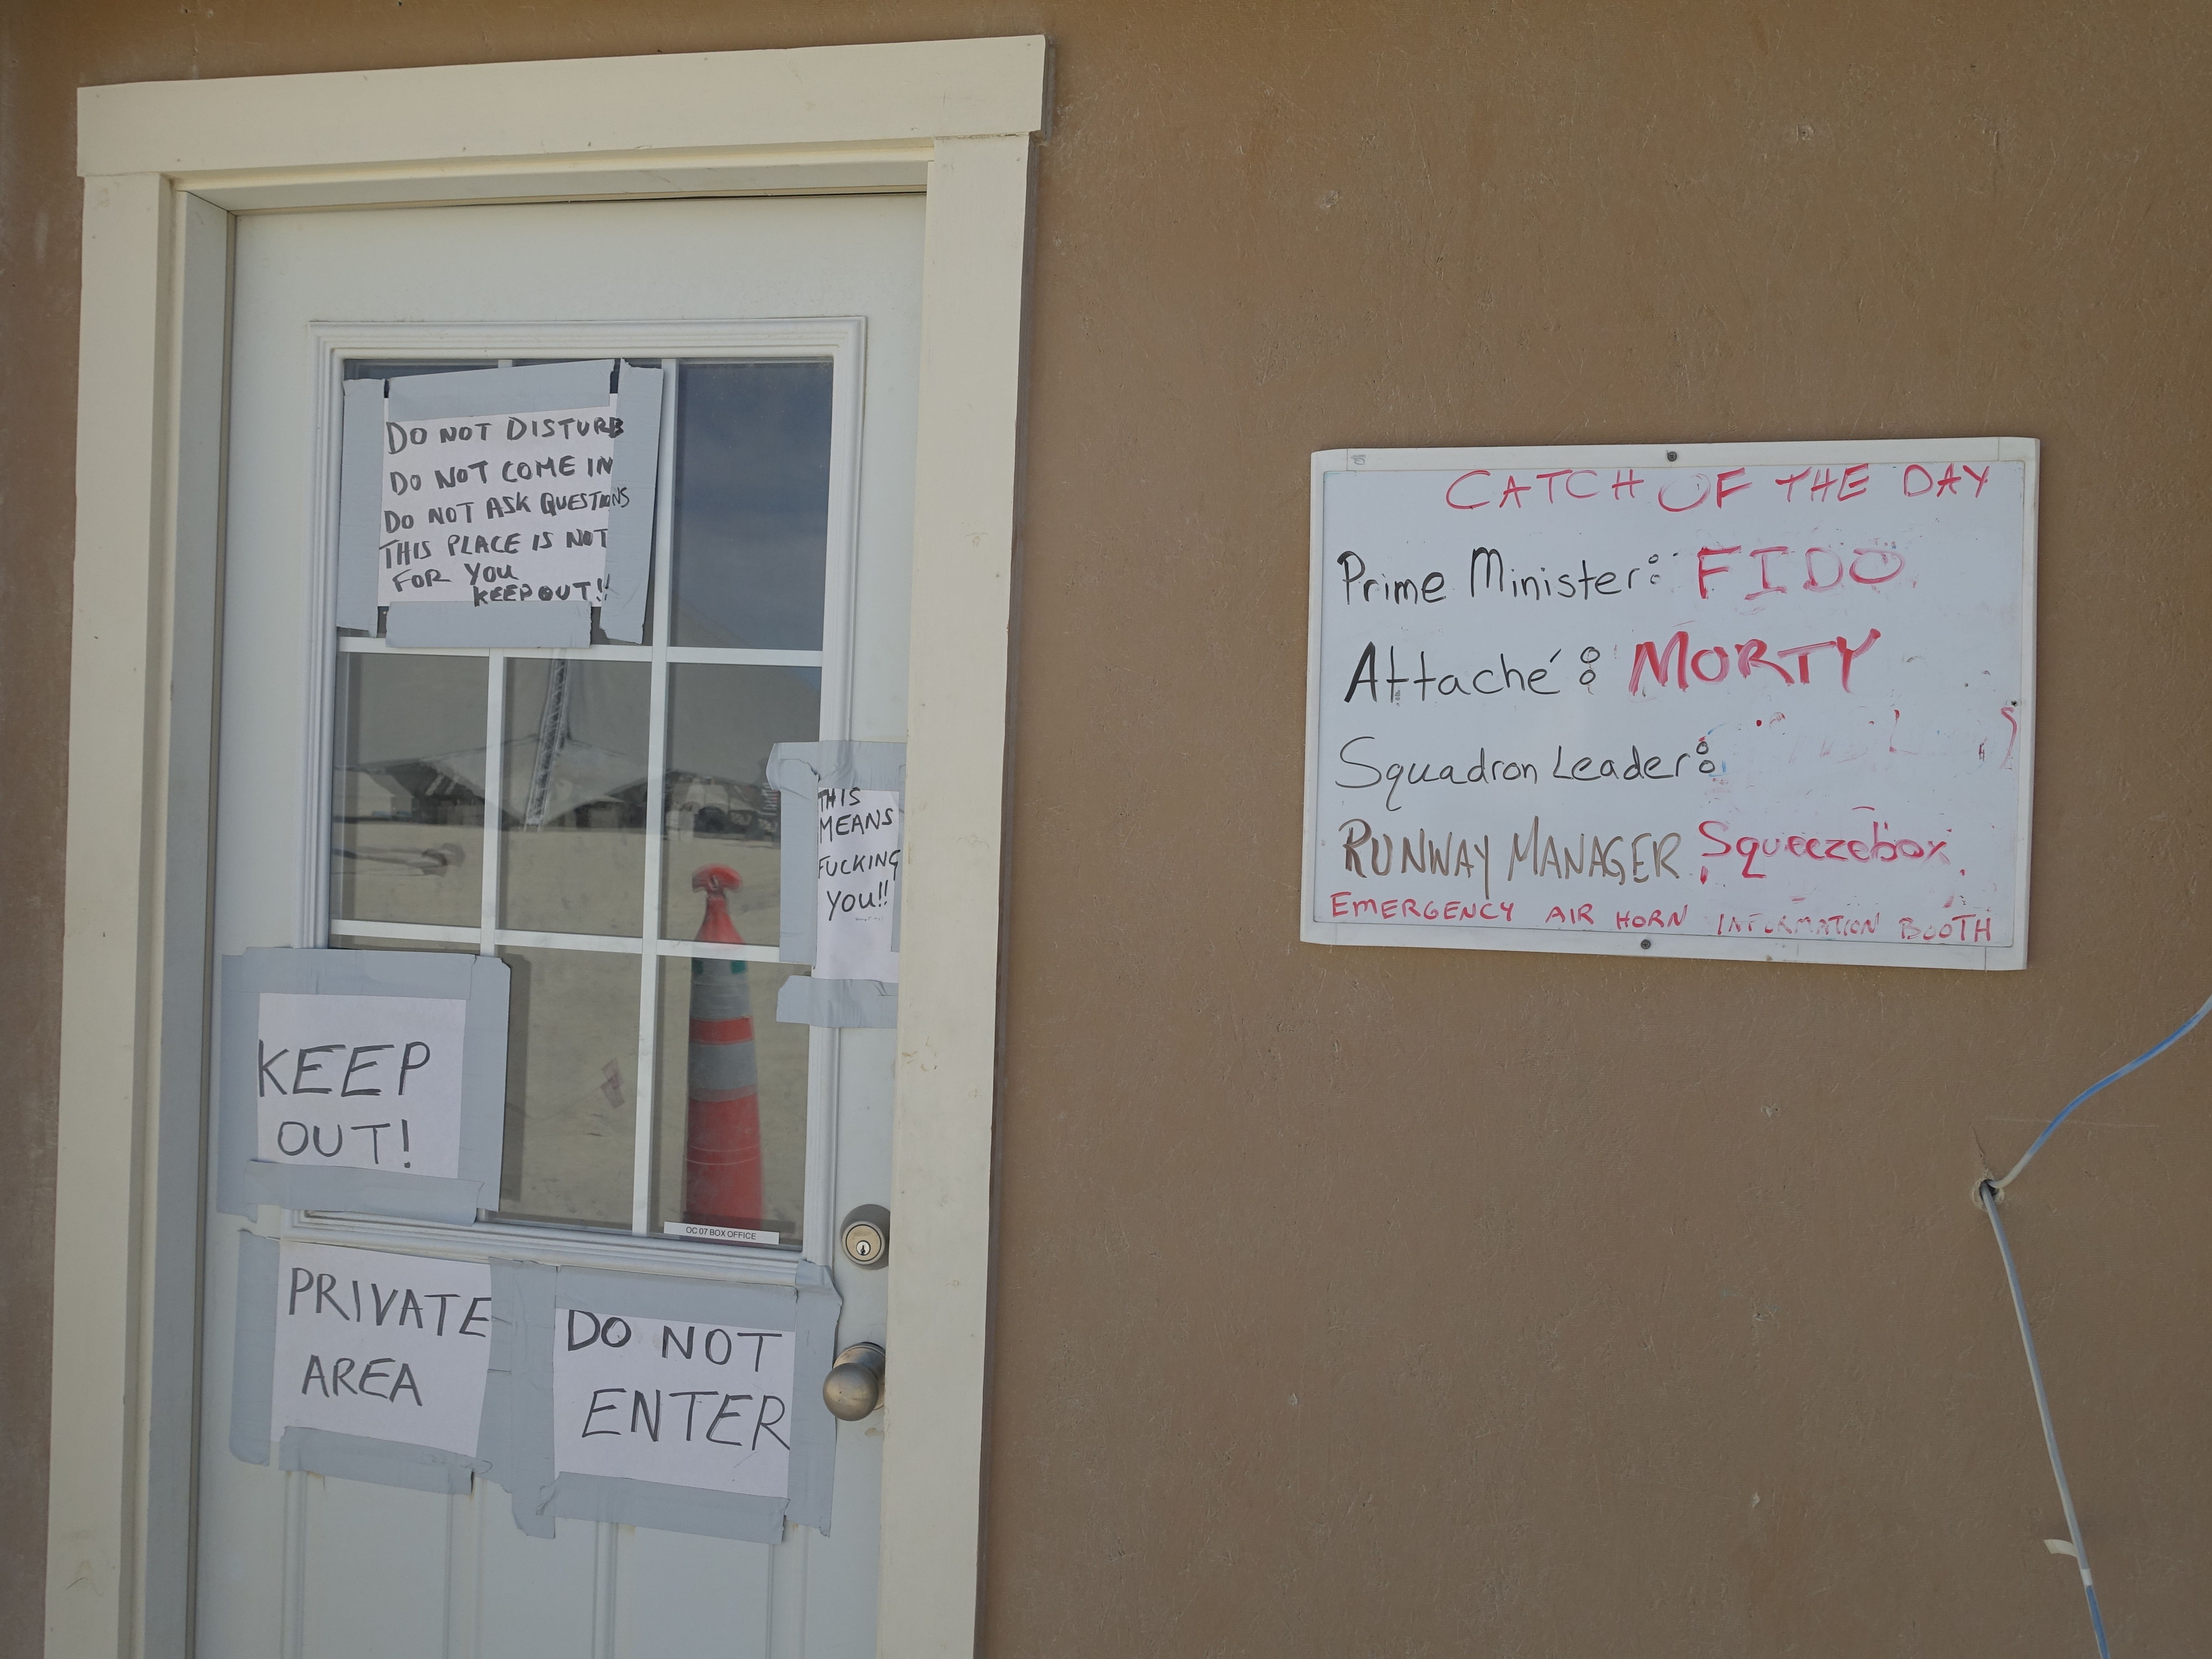 DO NOT DISTURB
DO NOT COME IN
DO NOT ASK QUESTIONS
THIS PLACE IS NOT
FOR YOU
KEEP OUT!!
THIS
MEANS
FUCKING
YOU!!
KEEP
OUT!
OC 07 BOX OFFICE
PRIVATE
AREA
DO NOT
ENTER
CATCH OF THE DAY
Prime Minister: FIDO
Attaché: MORTY
Squadron Leader:
RUNWAY MANAGER Squeezebox
EMERGENCY AIR HORN INFORMATION BOOTH